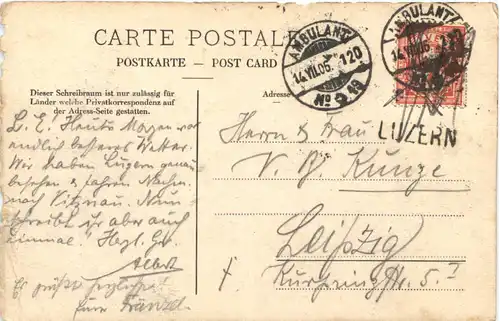 CARTE POSTALE
POSTKARTE – POST CARD
Dieser Schreibraum ist nur zulässig für
Länder welche Privatkorrespondenz auf
der Adress-Seite gestatten.
Adresse
AMBULANT
14.VII.06. 120
No 19
AMBULANT
14.VII.06. 120
LUZERN
L. E. Heute Morgen
endlich besseres Wetter.
Wir haben Luzern genau
besehen & fahren Nachm.
nach Vitznau. Nun
schreibt ihr aber auch
einmal! Herzl. Gr.
Albert
Es grüßt herzlichst
Fränzel
Herrn & Frau
Kunze
Leipzig
Kurprinzstr. 5. I